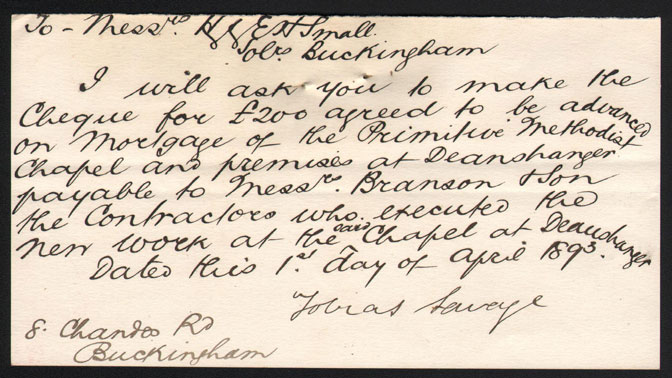 To - Messrs. H & E H Small.
Solrs Buckingham
I will ask you to make the
Cheque for £200 agreed to be advanced
on Mortgage of the Primitive Methodist
Chapel and premises at Deanshanger
payable to Messrs. Branson & Son
the Contractors who executed the
new work at the said Chapel at Deanshanger
Dated this 1st day of April 1893.
Tobias Savage
8. Chandos Rd
Buckingham